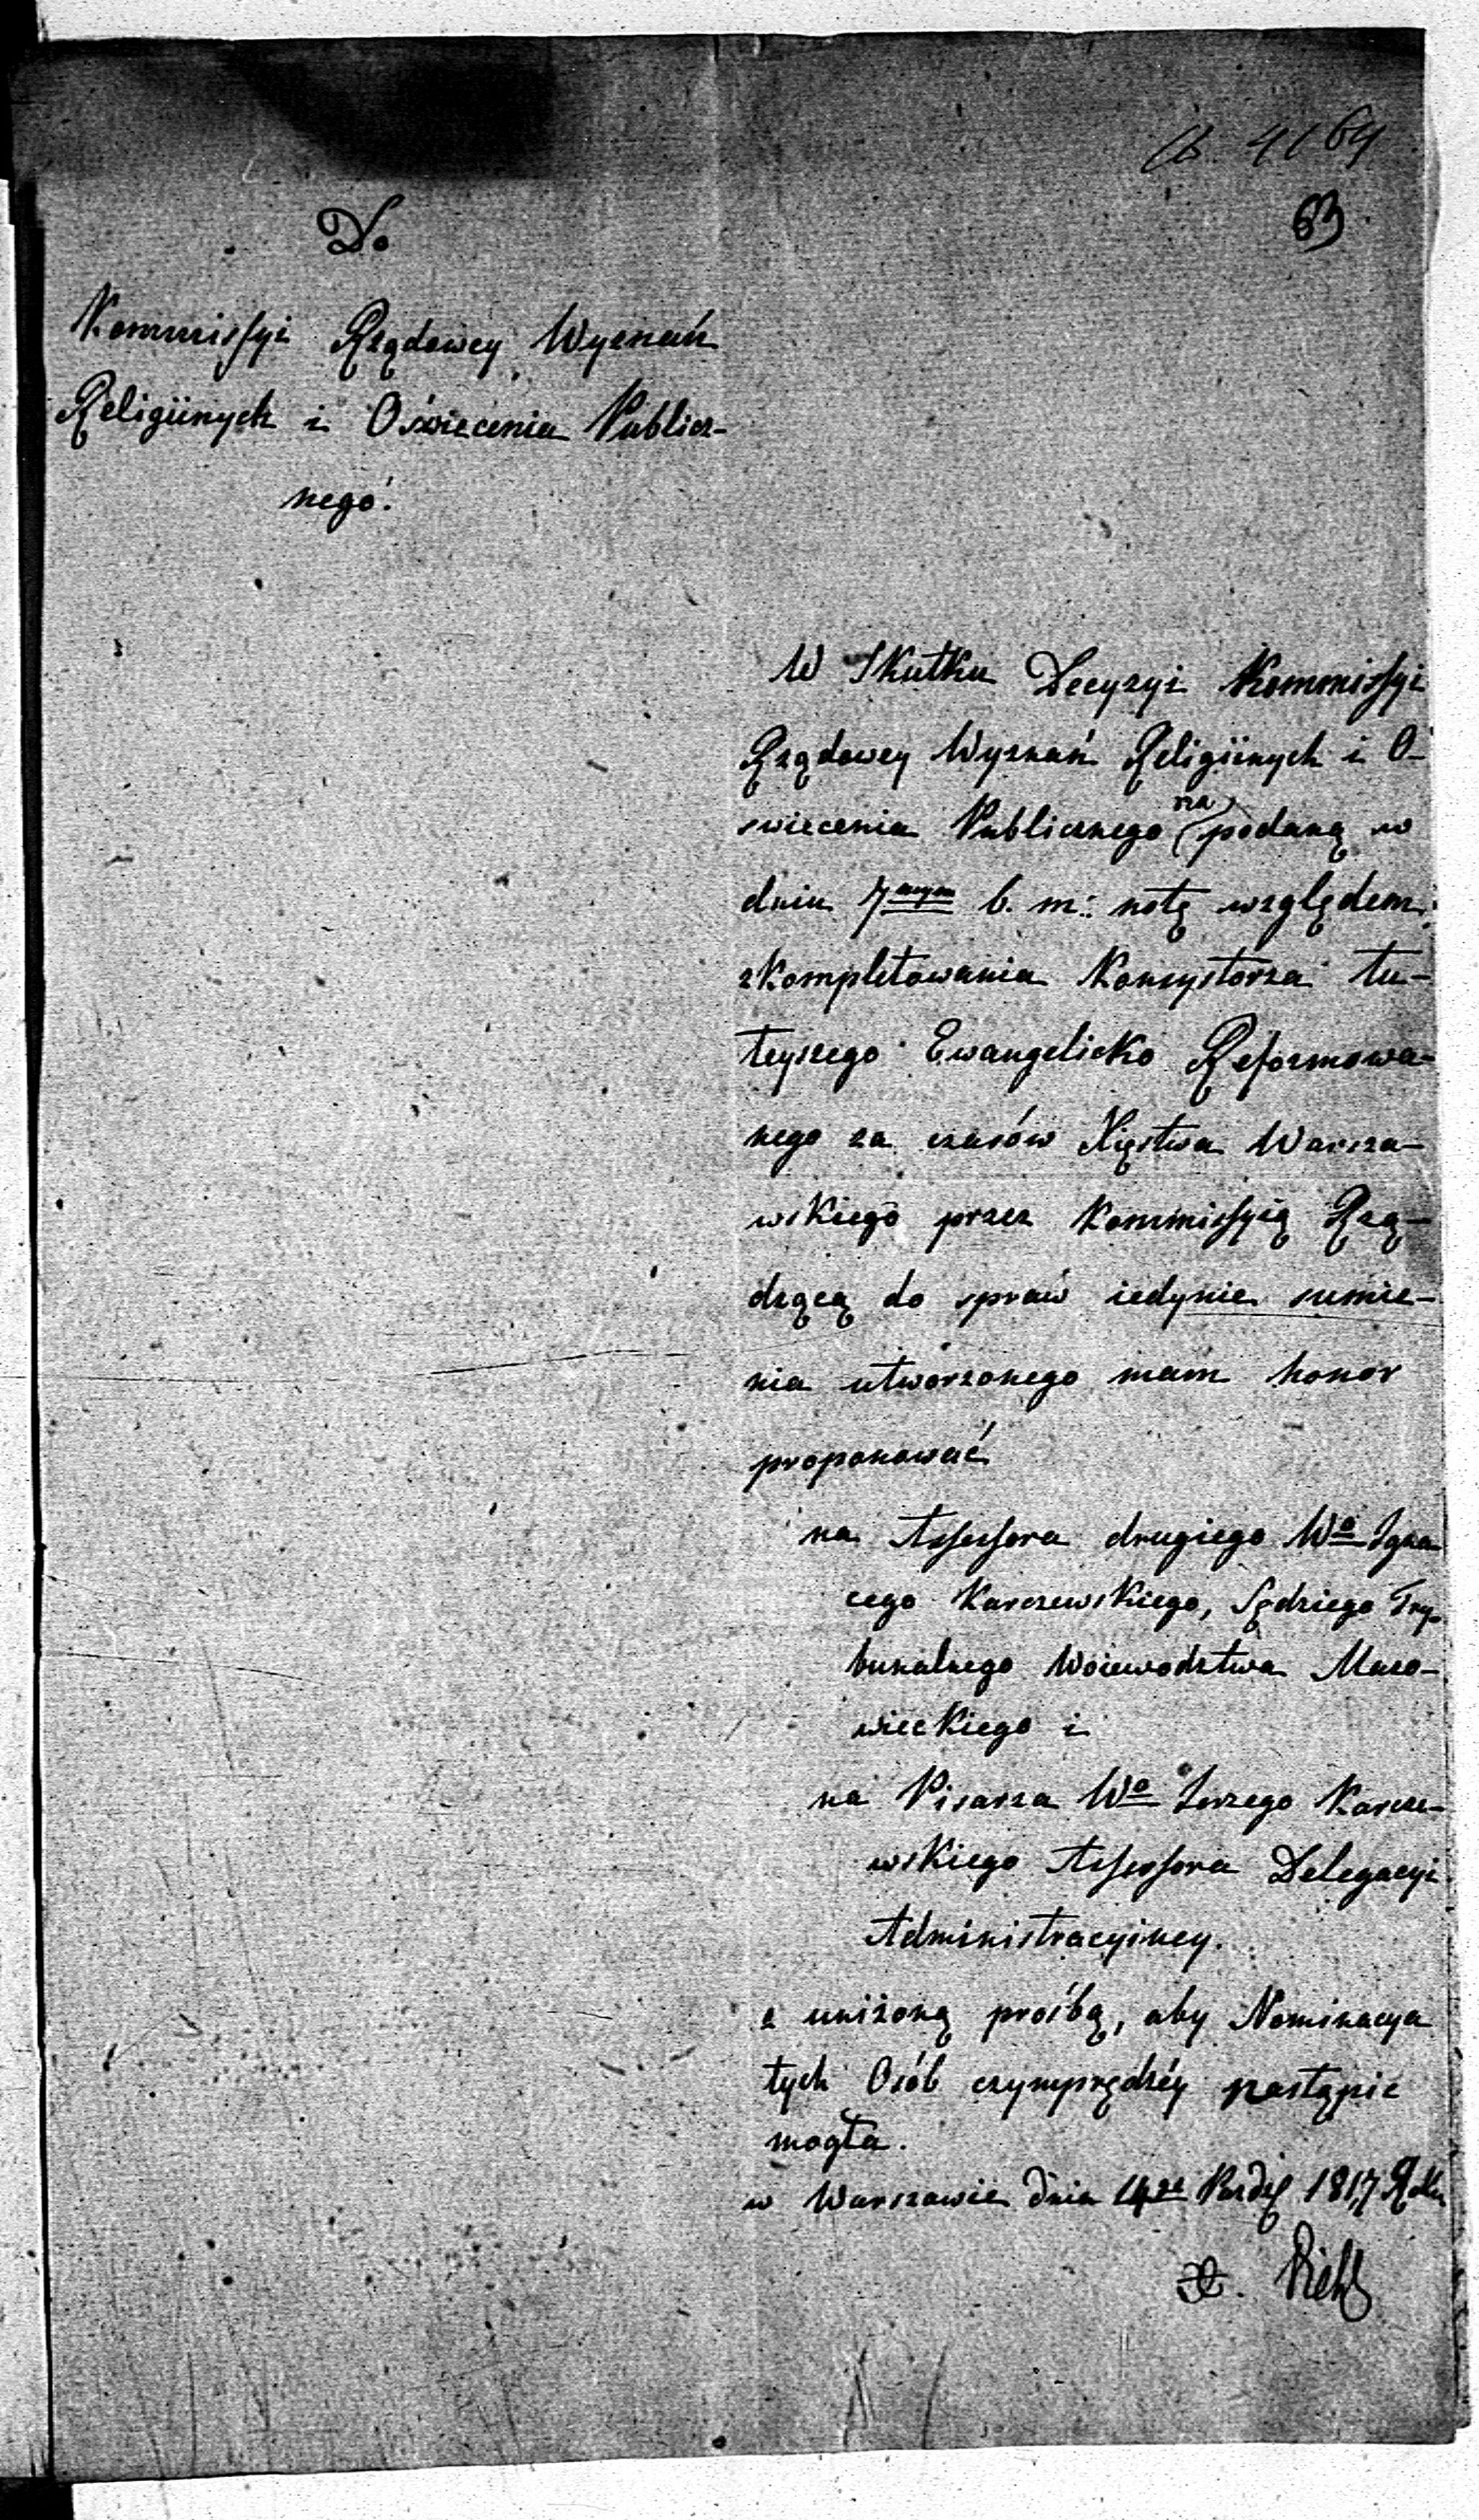 4164
63
Do
Kommissyi Rządowey Wyznań
Religiinych i Oświecenia Publicz-
nego.
W Skutku Decyzyi Kommissyi
Rządowey Wyznań Religiinych i O-
świecenia Publicznego na podaną w
dniu 7mym b. m: notę względem
zkompletowania Konsystorza tu-
teyszego Ewangelicko Reformowa-
nego za czasów Xięstwa Warsza-
wskiego przez Kommissyią Rzą-
dzącą do spraw iedynie sumie-
nia utworzonego mam honor
proponować
na Assessora drugiego Wo Igna
cego Karczewskiego, Sędziego Try-
bunalnego Woiewodztwa Mazo-
wieckiego i
na Pisarza Wo Jerzego Karcze-
wskiego Assessora Delegacyi
Administracyiney.
z uniżoną prośbą, aby Nominacya
tych Osób czymprędzéy nastąpić
mogła.
w Warszawie dnia 14go Paźdz 1817 Roku
X. Diehl